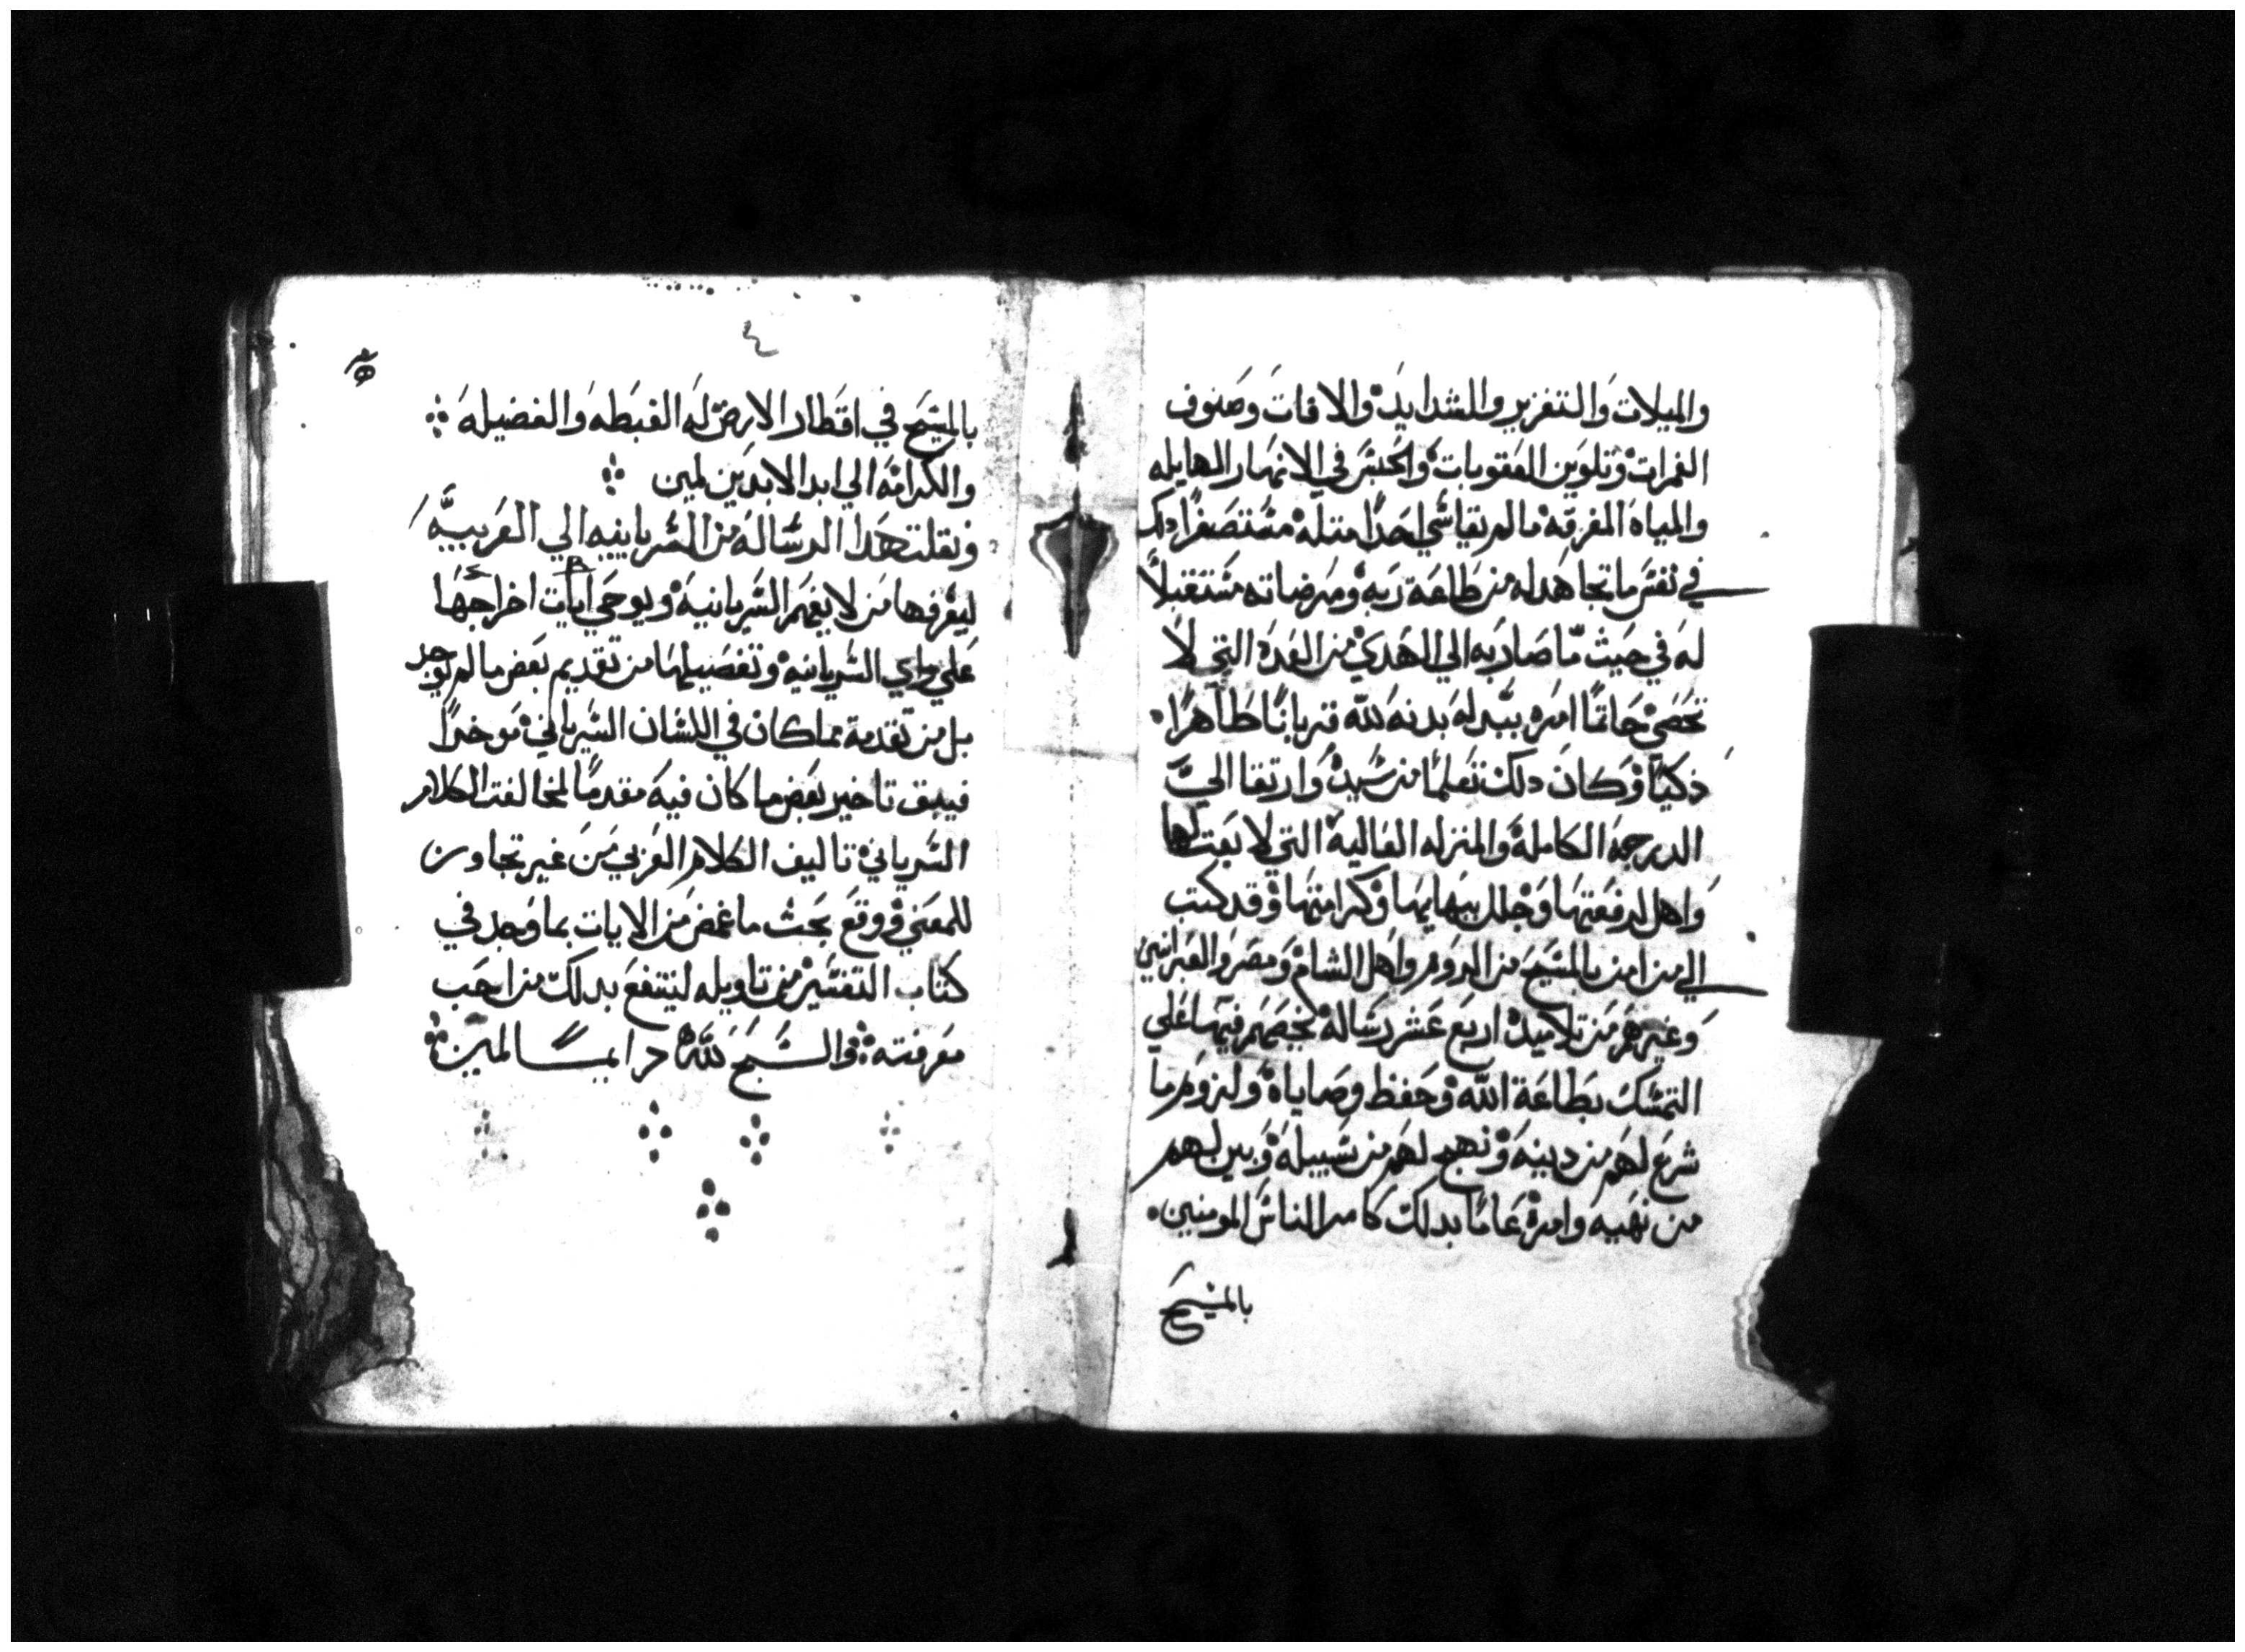 والميلات والتغزير والشدايد والافات وصنوف
الغمرات وتلوين العقوبات والحبس في الانهار الهايله
والمياه المغرقه ما لم يقاسي احدا مثله مستصغرا دلك
في نفس ما تجاهد له من طاعة ربه ومرضاته مستقبلا
له في حيث ما صار به الي الهدي من العده التي لا
تحصي حاتما امره ببدله بدنه لله قربانا طاهرا
ذكيا وكان دلك تعلما من سيده وارتقا الي
الدرجه الكامله والمنزله العاليه التي لا بعت لها
واهل لرفعتها وجلل ببهايها وكرامتها وقد كتب
الي من امن بالمسيح من الروم واهل الشام ومصر والعبرانيين
وغيرهم من تلاميده اربع عشر رساله يخصهم فيها علي
التمسك بطاعة الله وحفظ وصاياه ولزوم ما
شرع لهم من دينه ونهج لهم من سبيله وبين لهم
من نهيه وامره عاما بدلك كامر الناس المومنين
بالمسيح
٤
بالمسيح في اقطار الارض له الغبطه والفضيله
والكرامه الي ابد الابدين امين
ونقلت هدا الرساله من السريانيه الي العربيه
ليعرفها من لا يفهم السريانيه ويوحي ايات اخراجها
علي واي السريانيه وتفصيلها من تقديم بعض ما لم يوجد
بل من تقدمة مما كان في اللسان السرياني موخرا
فيبق تاخير بعض ما كان فيه مقدما لمخالفت الكلام
السرياني تاليف الكلام العربي من غير تجاوز
للمعني ووقع بحث ما غمض من الايات بما وجد في
كتاب التفسير من تاويله لينتفع بدلك من احب
معرفته والسبح لله دايما امين